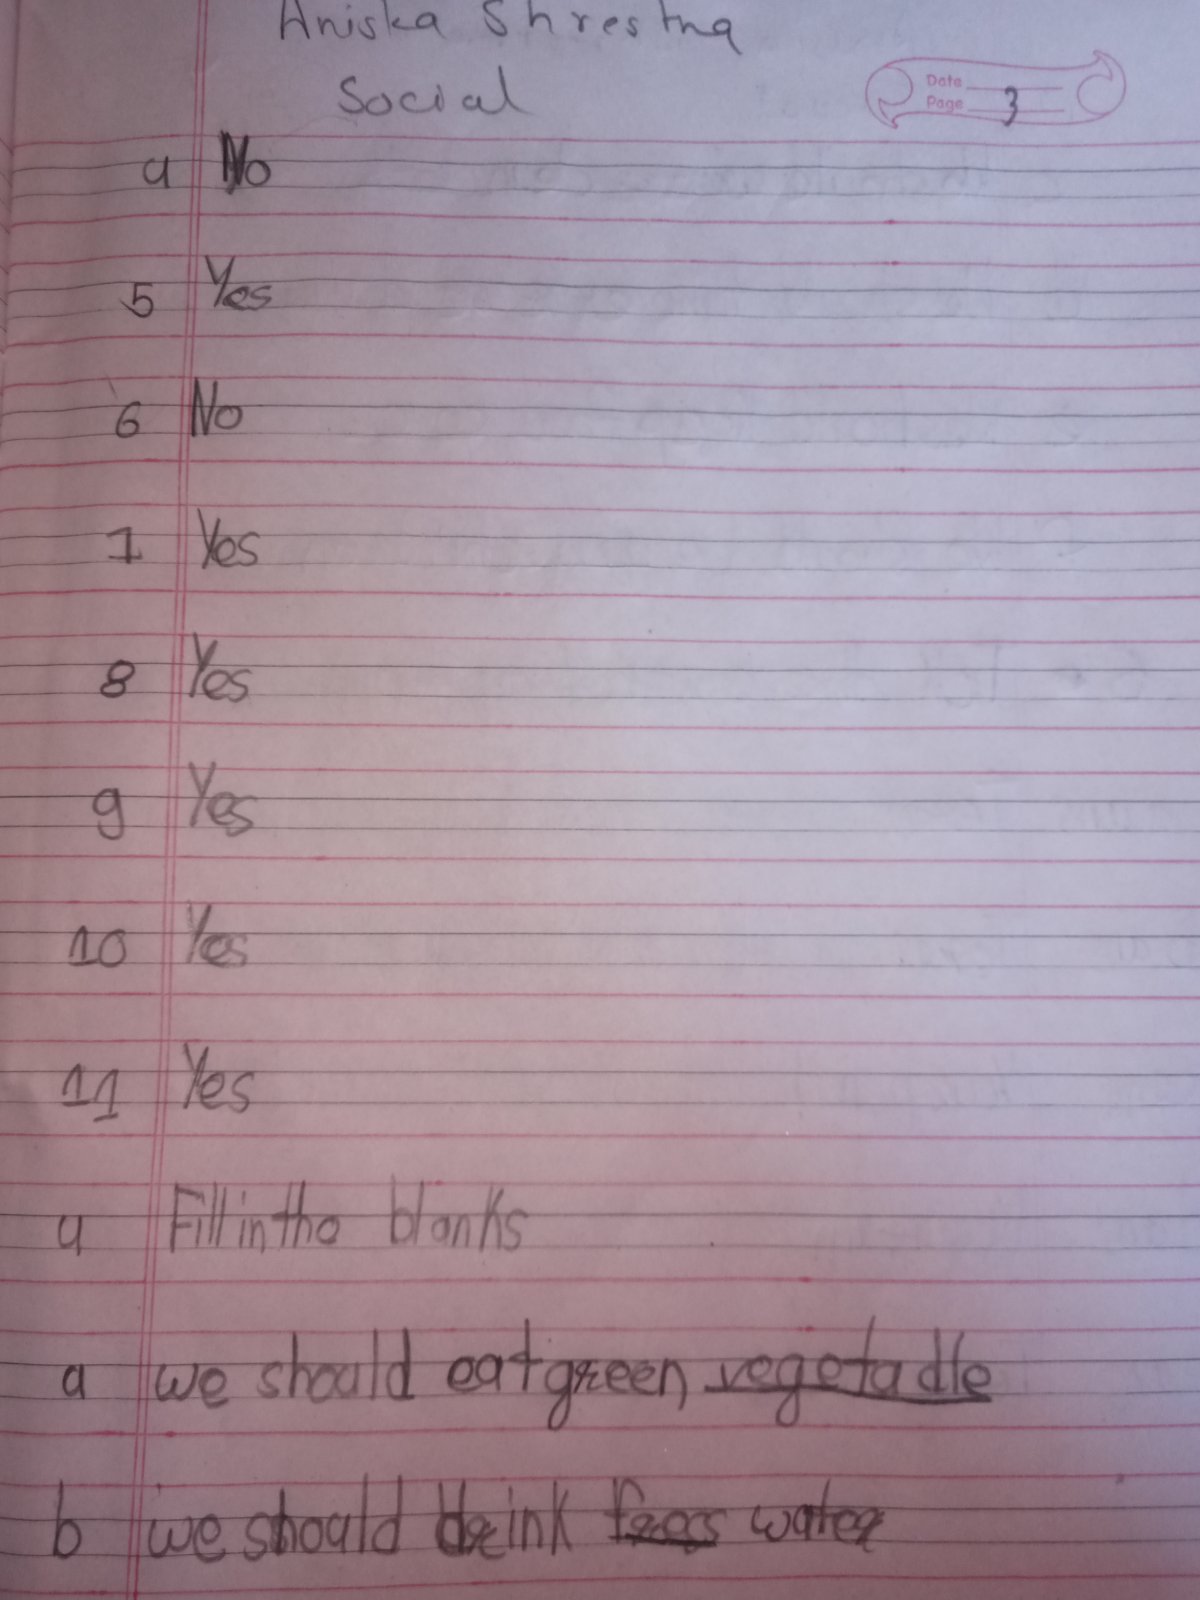 Aniska Shrestha
Social
Date
Page 3
4 No
5 Yes
6 No
7 Yes
8 Yes
9 Yes
10 Yes
11 Yes
4 Fill in tho blanks
a we should eat green vegetadle
b we should drink water